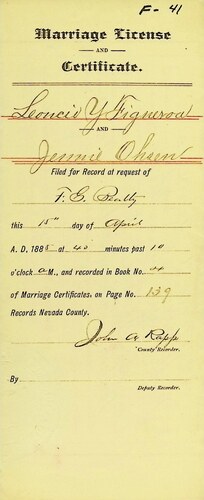 F-41
Marriage License
AND
Certificate.
Leoncio Y Figueroa
AND
Jennie Olsen
Filed for Record at request of
F. G. Beatty
this 15th day of April
A. D. 1885 at 40 minutes past 10
o'clock A M., and recorded in Book No.
of Marriage Certificates, on Page No. 139
Records Nevada County.
John A Rapp
County Recorder.
By
Deputy Recorder.